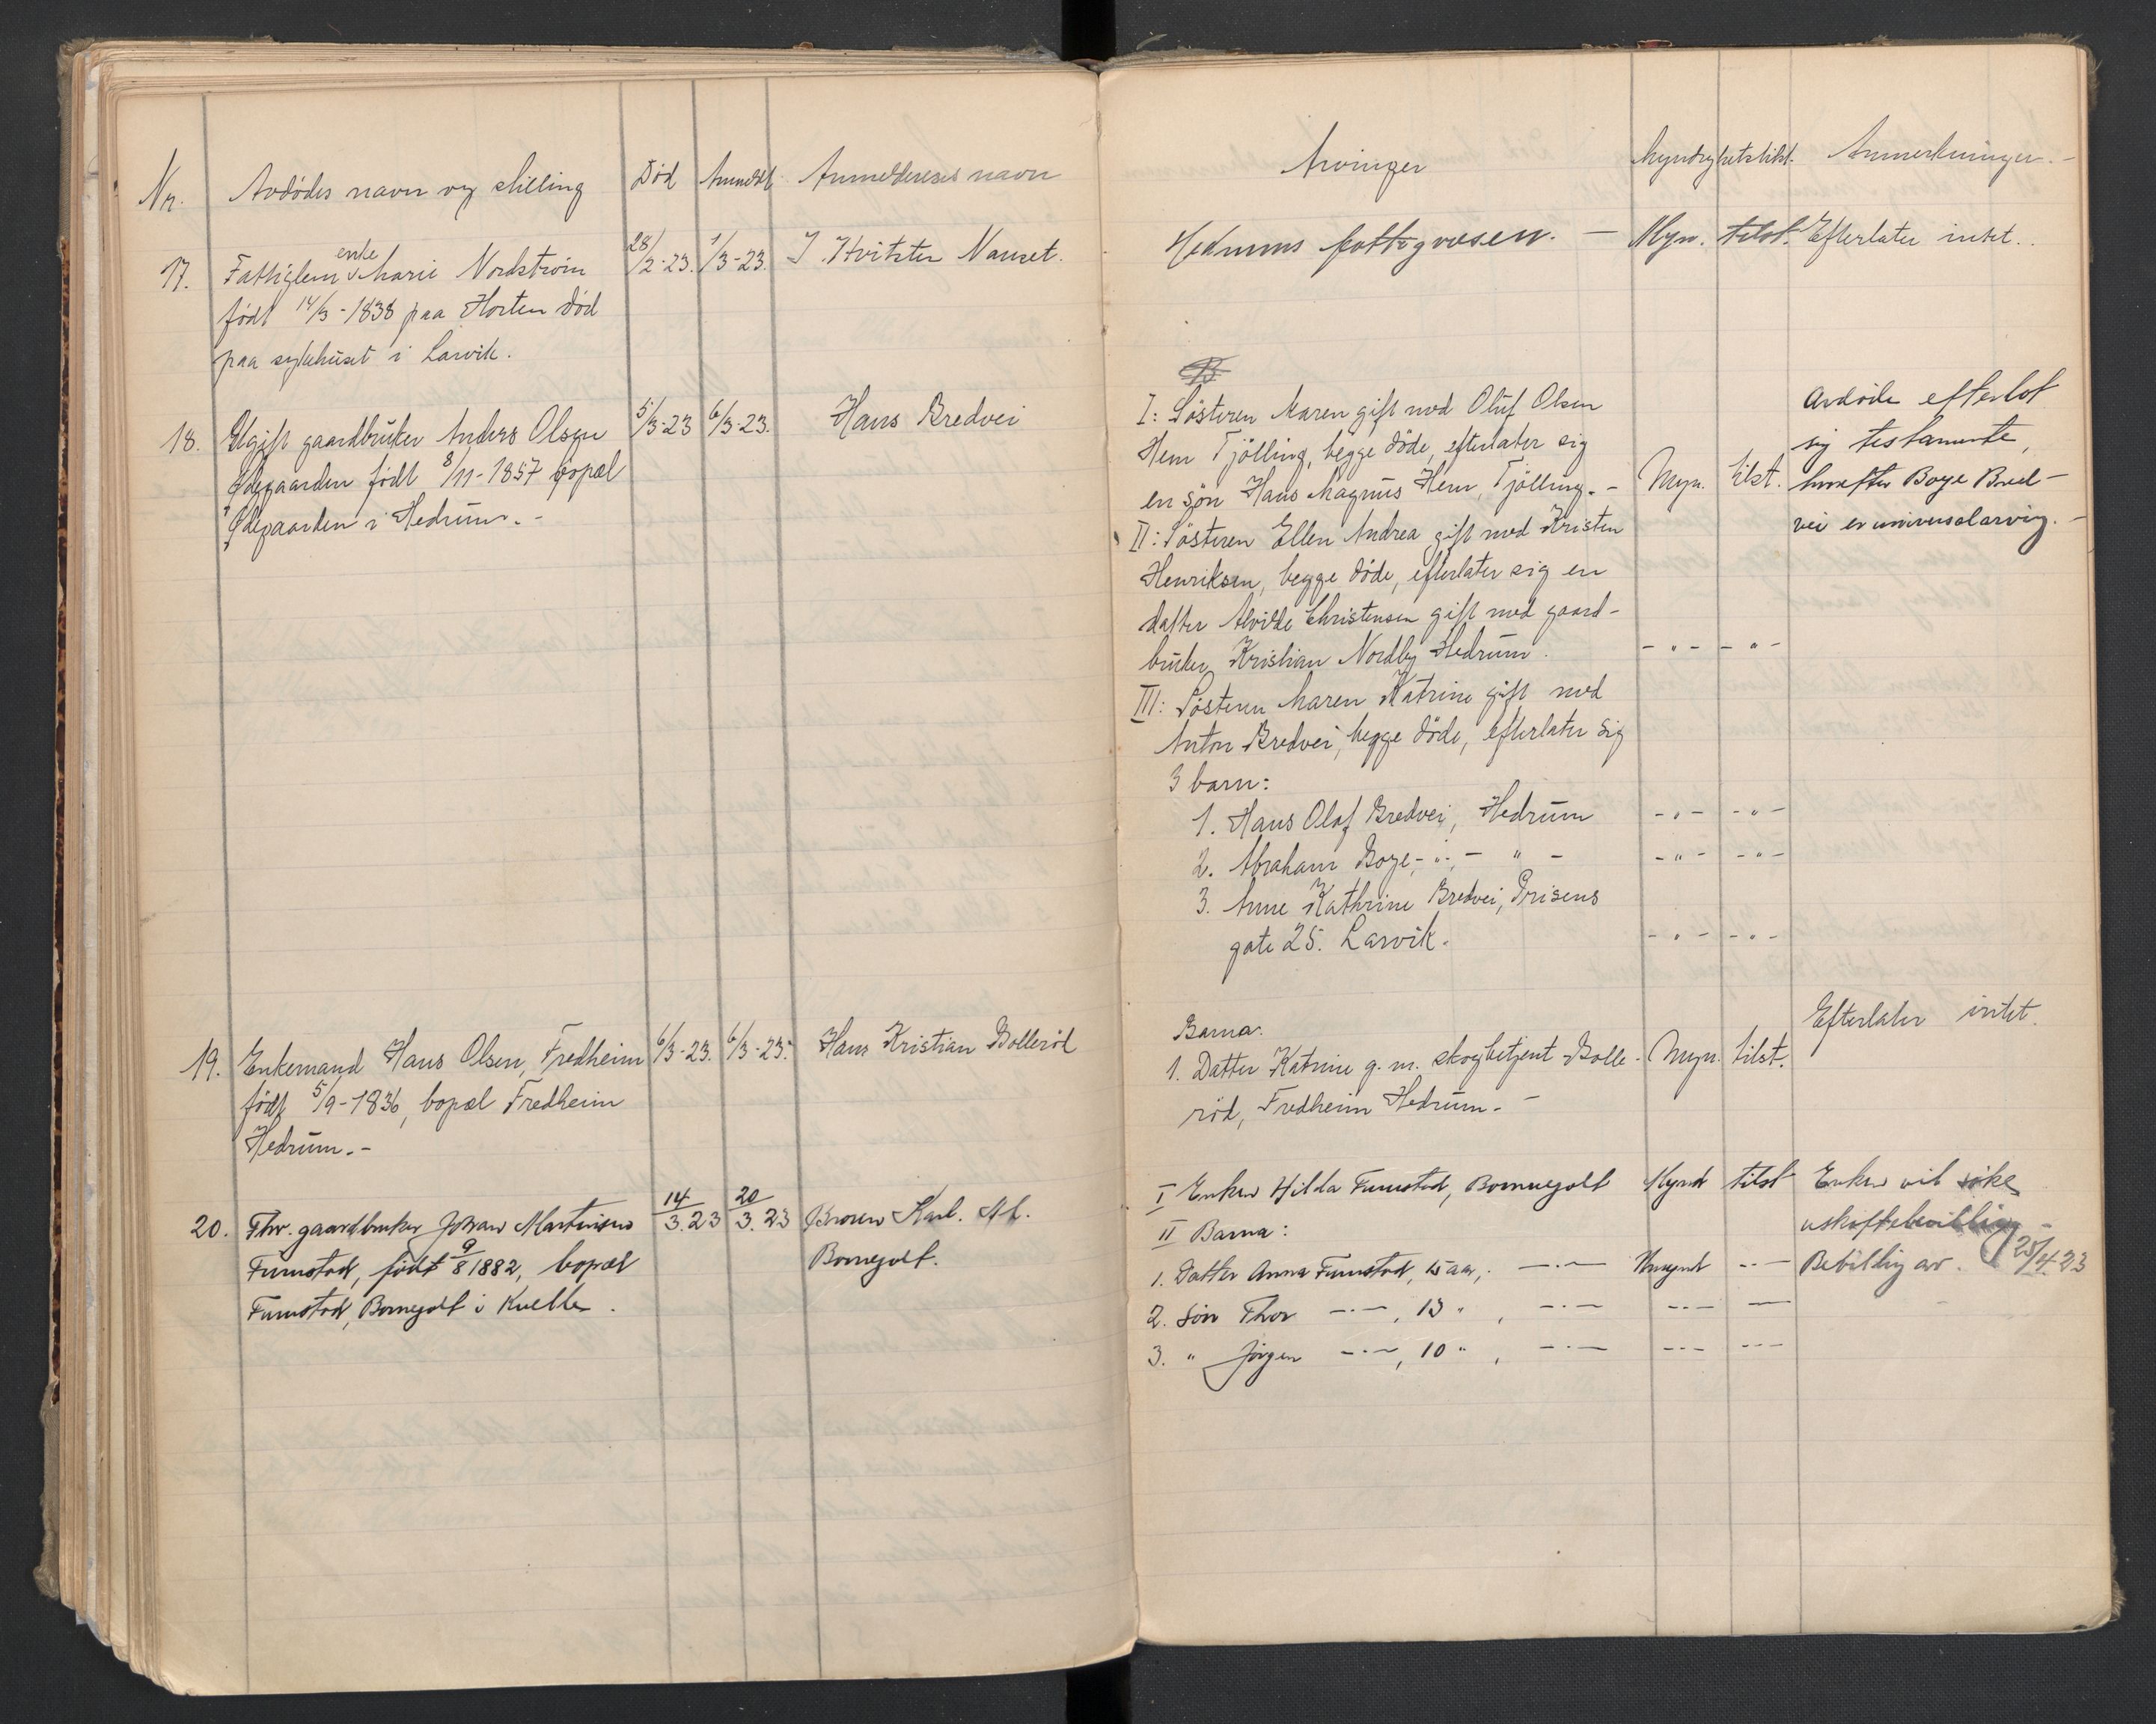 Nr. Avdødes navn og stilling Død Anmeldt Anmelderens navn
17. Fattiglem enke Marie Nordstrøm 28/2-23. 1/3-23. J. Hvitsten Nanset.
født 14/3-1838 paa Horten død
paa sykehuset i Larvik.
18. Ugift gaardbruker Anders Olsen 5/3-23 6/3-23. Hans Bredvei
Ødegaarden født 8/11-1857 bopæl
Ødegaarden i Hedrum.-
19. Enkemand Hans Olsen, Fredheim 6/3-23. 6/3-23. Hans Kristian Bollerød
født 5/9-1836, bopæl Fredheim
Hedrum.-
20. Fhv. gaardbruker Johan Martinsen 14/3.23 20/3.23 Broren Karl
Furustad, født 9/8 1882, bopæl Bommegolt.
Furustad, Bommegolt i Kvelle.
Arvinger Myndighetstilst. Anmerkninger.-
Hedrums fattigvæsen. - Myn. tilst. Efterlater intet.
I: Søsteren Maren gift med Oluf Olsen Avdøde efterlot
Hem Tjølling, begge døde, efterlater sig sig testamente,
en søn Hans Magnus Hem, Tjølling.- Myn. tilst. hvorefter Boye Bred-
II: Søsteren Ellen Andrea gift med Kristen vei er universalarving.-
Henriksen, begge døde, efterlater sig en
datter Alvilde Christensen gift med gaard-
bruker Kristian Nordby Hedrum. - " - - " -
III: Søsteren Maren Katrine gift med
Anton Bredvei, begge døde, efterlater sig
3 barn:
1. Hans Olaf Bredvei, Hedrum - " - - " -
2. Abraham Boye - " - - " - - " - - " -
3. Anne Kathrine Bredvei, Prinsens
gate 25. Larvik. - " - - " -
Barna: Efterlater intet.
1. Datter Katrine g. m. skogbetjent Bolle- Myn. tilst.
rød, Fredheim Hedrum.-
I Enken Hilda Furustad, Bommegolt Mynd tilst Enken vil søke
II Barna: uskiftebevilling -
1. Datter Anna Furustad, 15 aar, -·- Umynd -·- Bevilling av 25/4.23
2. Søn Thor -·-, 13 ", -·- -·- -·-
3. " Jørgen -·-, 10 ", -·- -·- -·-